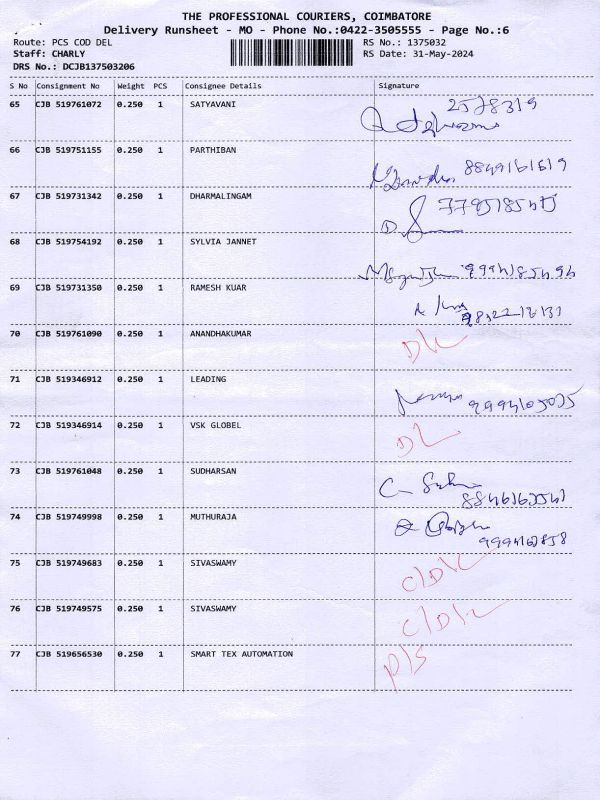 THE PROFESSIONAL COURIERS, COIMBATORE
Delivery Runsheet - MO - Phone No.:0422-3505555 - Page No.:6
Route: PCS COD DEL RS No.: 1375032
Staff: CHARLY RS Date: 31-May-2024
DRS No.: DCJB137503206
S No Consignment No Weight PCS Consignee Details Signature
65 CJB 519761072 0.250 1 SATYAVANI
66 CJB 519751155 0.250 1 PARTHIBAN
67 CJB 519731342 0.250 1 DHARMALINGAM
68 CJB 519754192 0.250 1 SYLVIA JANNET
69 CJB 519731350 0.250 1 RAMESH KUAR
70 CJB 519761090 0.250 1 ANANDHAKUMAR
71 CJB 519346912 0.250 1 LEADING
72 CJB 519346914 0.250 1 VSK GLOBEL
73 CJB 519761048 0.250 1 SUDHARSAN
74 CJB 519749998 0.250 1 MUTHURAJA
75 CJB 519749683 0.250 1 SIVASWAMY
76 CJB 519749575 0.250 1 SIVASWAMY
77 CJB 519656530 0.250 1 SMART TEX AUTOMATION P/S